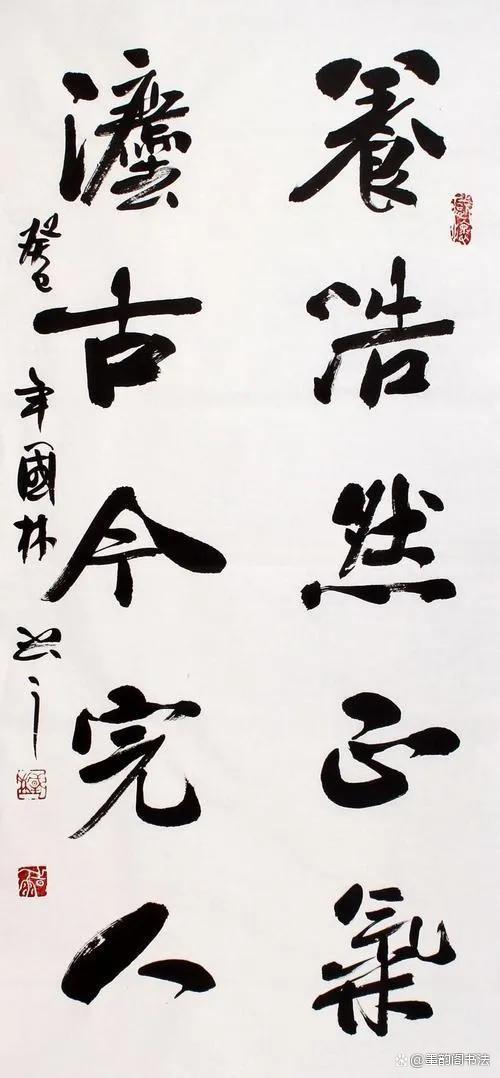 養浩然正氣
灋古今完人
癸巳年國林
@墨韵阁书法